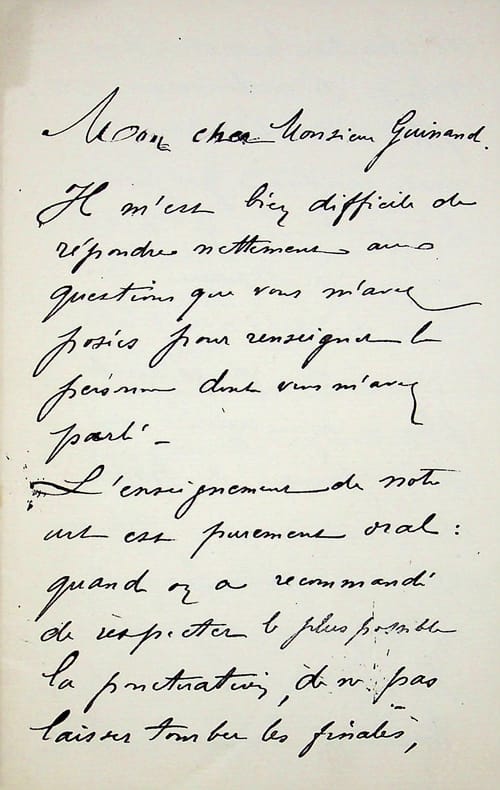 Mon cher Monsieur Guinand.
Il m'est bien difficile de
répondre nettement aux
questions que vous m'avez
posées pour renseigner la
personne dont vous m'avez
parlé –
L'enseignement de notre
art est purement oral :
quand on a recommandé
de respecter le plus possible
la ponctuation, de ne pas
laisser tomber les finales,